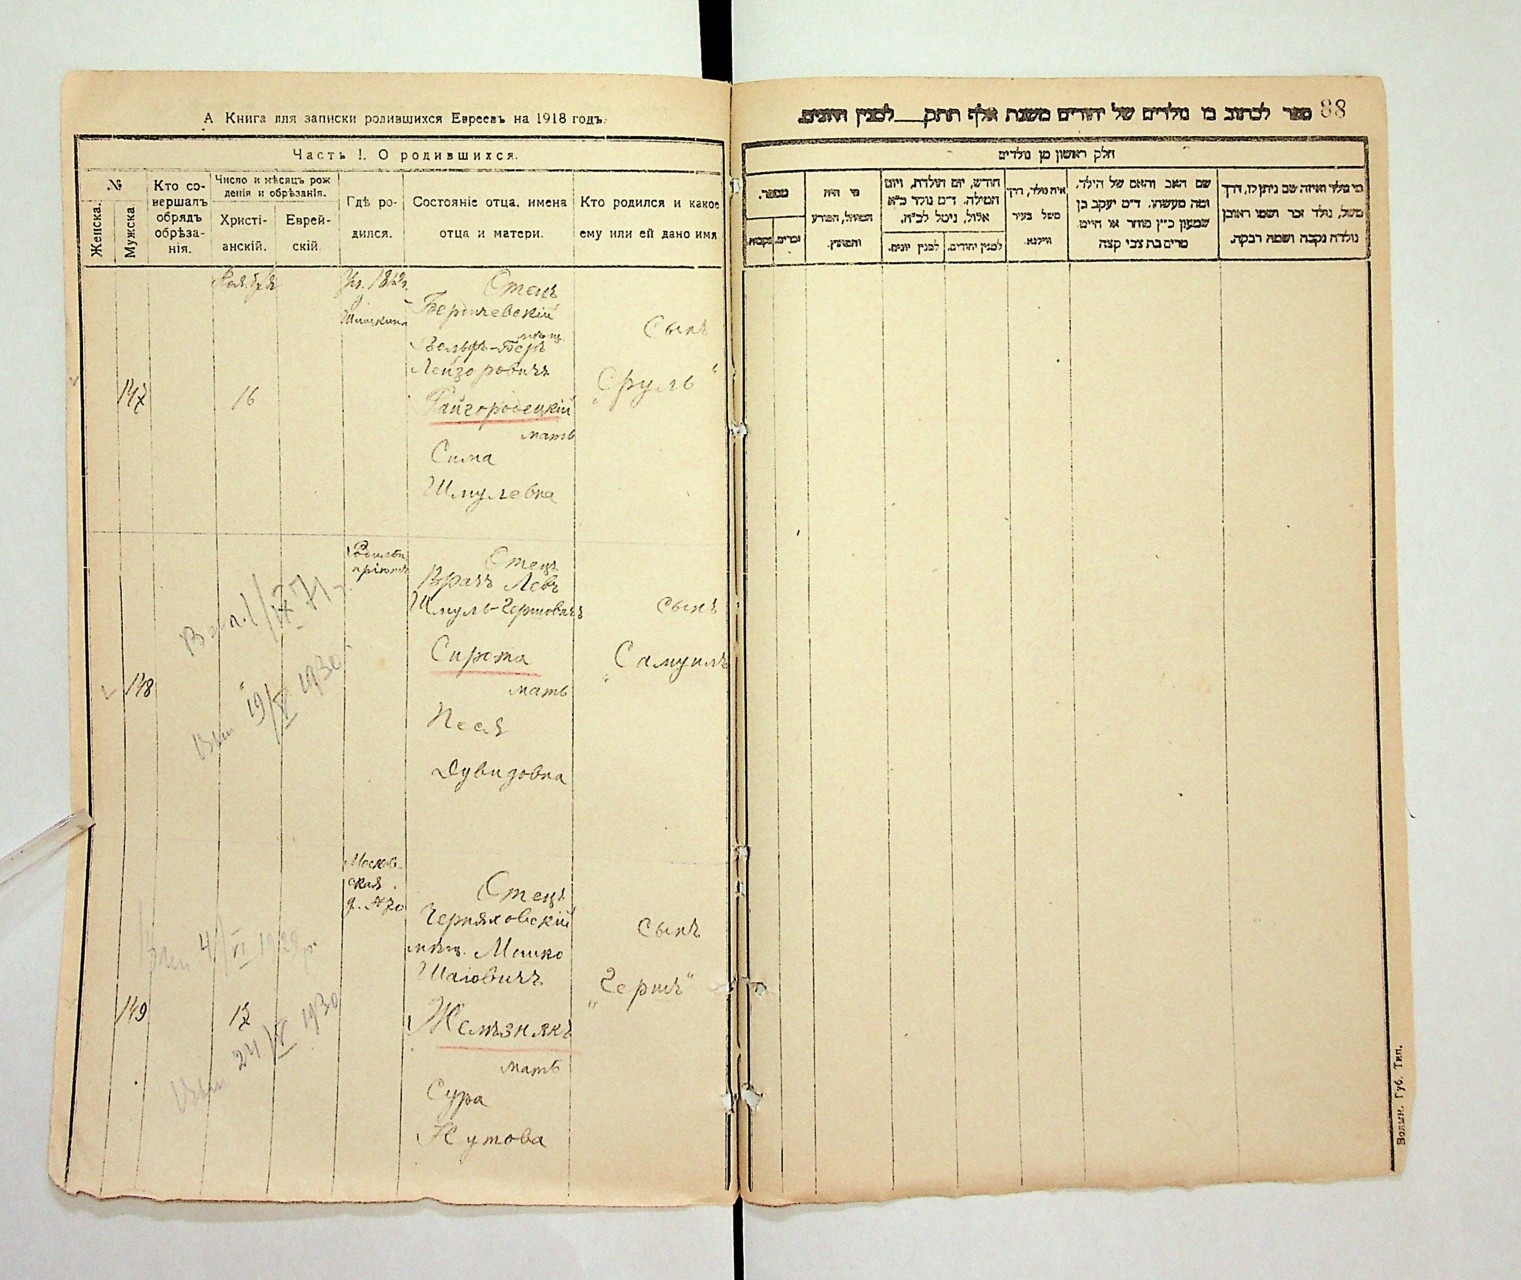 А Книга для записки родившихся Евреевъ на 1918 годъ.
Часть I. О родившихся.
№
Женска.
Мужска
Кто со-
вершалъ
обрядъ
обрѣза-
нія.
Число и мѣсяцъ рож
денія и обрѣзанія.
Христі-
анскій.
Еврей-
скій.
Гдѣ ро-
дился.
Состояніе отца, имена
отца и матери.
Кто родился и какое
ему или ей дано имя
147
Ноября
16
Отецъ
Бердичевскій
мѣщ.
Вольфъ-Беръ
Лейзоровичъ
Райгородецкій
мать
Сима
Шмулевна
Сынъ
„Сруль“
148
Отецъ
Врачъ Левъ
Шмуль-Гершовичъ
Сирота
мать
Песя
Дувидовна
сынъ
„Самуилъ
19/V 1930
149
17
Москов-
ская
Отецъ
Черняховскій
мѣщ. Мошко
Шаіовичъ
Желѣзнякъ
мать
Сура
Нутова
Сынъ
„Гершъ“
4/VI 1929 г.
24/V 1930
88
ספר לכתוב בו נולדים של יהודים משנת אלף תתק___ למנין היונים.
חלק ראשון מן נולדים
מספר.
נקבות.
זכרים.
מי היה
המוהל, הפורע
והמוצץ.
חודש, יום הולדת, ויום
המילה. ד״מ נולד כ״א
אלול, נימול לכ״ח.
למנין יונים.
למנין יהודים.
איה נולד, דרך
משל בעיר
ווילנא.
שם האב והאם של הילד,
ומה מעשהו. ד״מ יעקב בן
שמעון כ״ץ סוחר או חייט
מרים בת צבי קצה
מי נולד ואיזה שם ניתן לו, דרך
משל, נולד זכר ושמו ראובן
נולדה נקבה ושמה רבקה.
Волын. Губ. Тип.